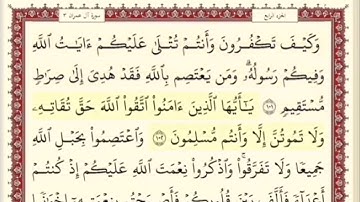 الجزء الرابع
سورة آل عمران ٣
وَكَيْفَ تَكْفُرُونَ وَأَنتُمْ تُتْلَىٰ عَلَيْكُمْ ءَايَـٰتُ ٱللَّهِ
وَفِيكُمْ رَسُولُهُۥ ۗ وَمَن يَعْتَصِم بِٱللَّهِ فَقَدْ هُدِىَ إِلَىٰ صِرَٰطٍ
مُّسْتَقِيمٍ ١٠١ يَـٰٓأَيُّهَا ٱلَّذِينَ ءَامَنُوا۟ ٱتَّقُوا۟ ٱللَّهَ حَقَّ تُقَاتِهِۦ
وَلَا تَمُوتُنَّ إِلَّا وَأَنتُم مُّسْلِمُونَ ١٠٢ وَٱعْتَصِمُوا۟ بِحَبْلِ ٱللَّهِ
جَمِيعًا وَلَا تَفَرَّقُوا۟ ۚ وَٱذْكُرُوا۟ نِعْمَتَ ٱللَّهِ عَلَيْكُمْ إِذْ كُنتُمْ
أَعْدَآءً فَأَلَّفَ بَيْنَ قُلُوبِكُمْ فَأَصْبَحْتُم بِنِعْمَتِهِۦٓ إِخْوَٰنًا